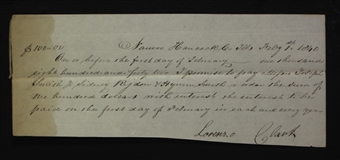 $100.00 Nauvoo Hancock Co. Ills. Feby 1. 1840
On or before the first day of February one thousand
eight hundred and forty two I promise to pay
Smith Jr. Sidney Rigdon & Hyrum Smith or order the sum of
one hundred dollars with interest the interest to be
paid on the first day of February in each and every year
Lorenzo Clark